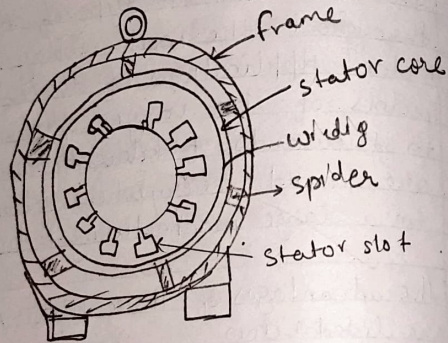 frame
stator core
widig
spider
stator slot.